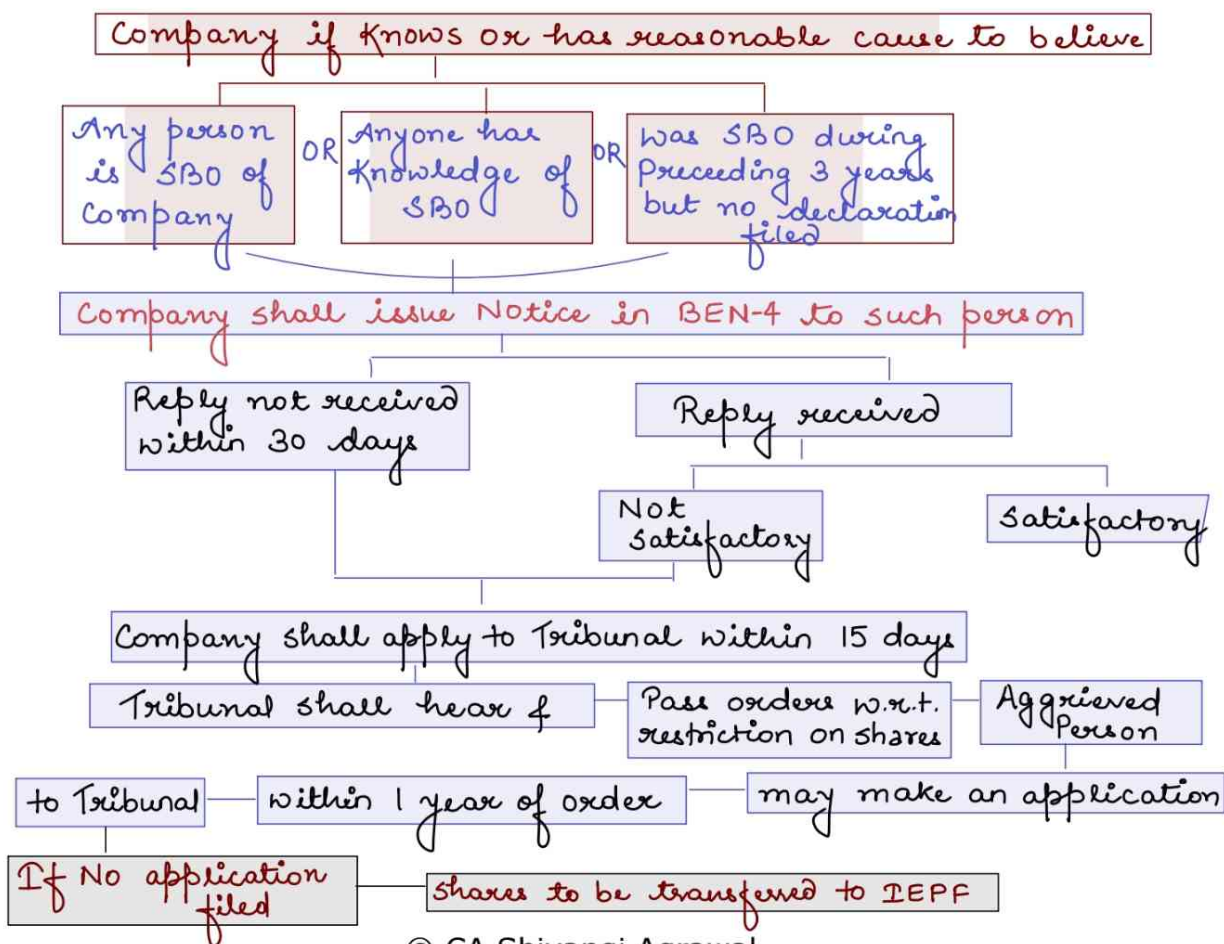 Company if Knows or has reasonable cause to believe
Any person
is SBO of
Company
OR
Anyone has
Knowledge of
SBO
OR
was SBO during
Preceeding 3 years
but no declaration
filed
Company shall issue Notice in BEN-4 to such person
Reply not received
within 30 days
Reply received
Not
Satisfactory
Satisfactory
Company shall apply to Tribunal within 15 days
Tribunal shall hear &
Pass orders w.r.t.
restriction on shares
Aggrieved
Person
may make an application
within 1 year of order
to Tribunal
If No application
filed
Shares to be transferred to IEPF
© CA Shivangi Agrawal